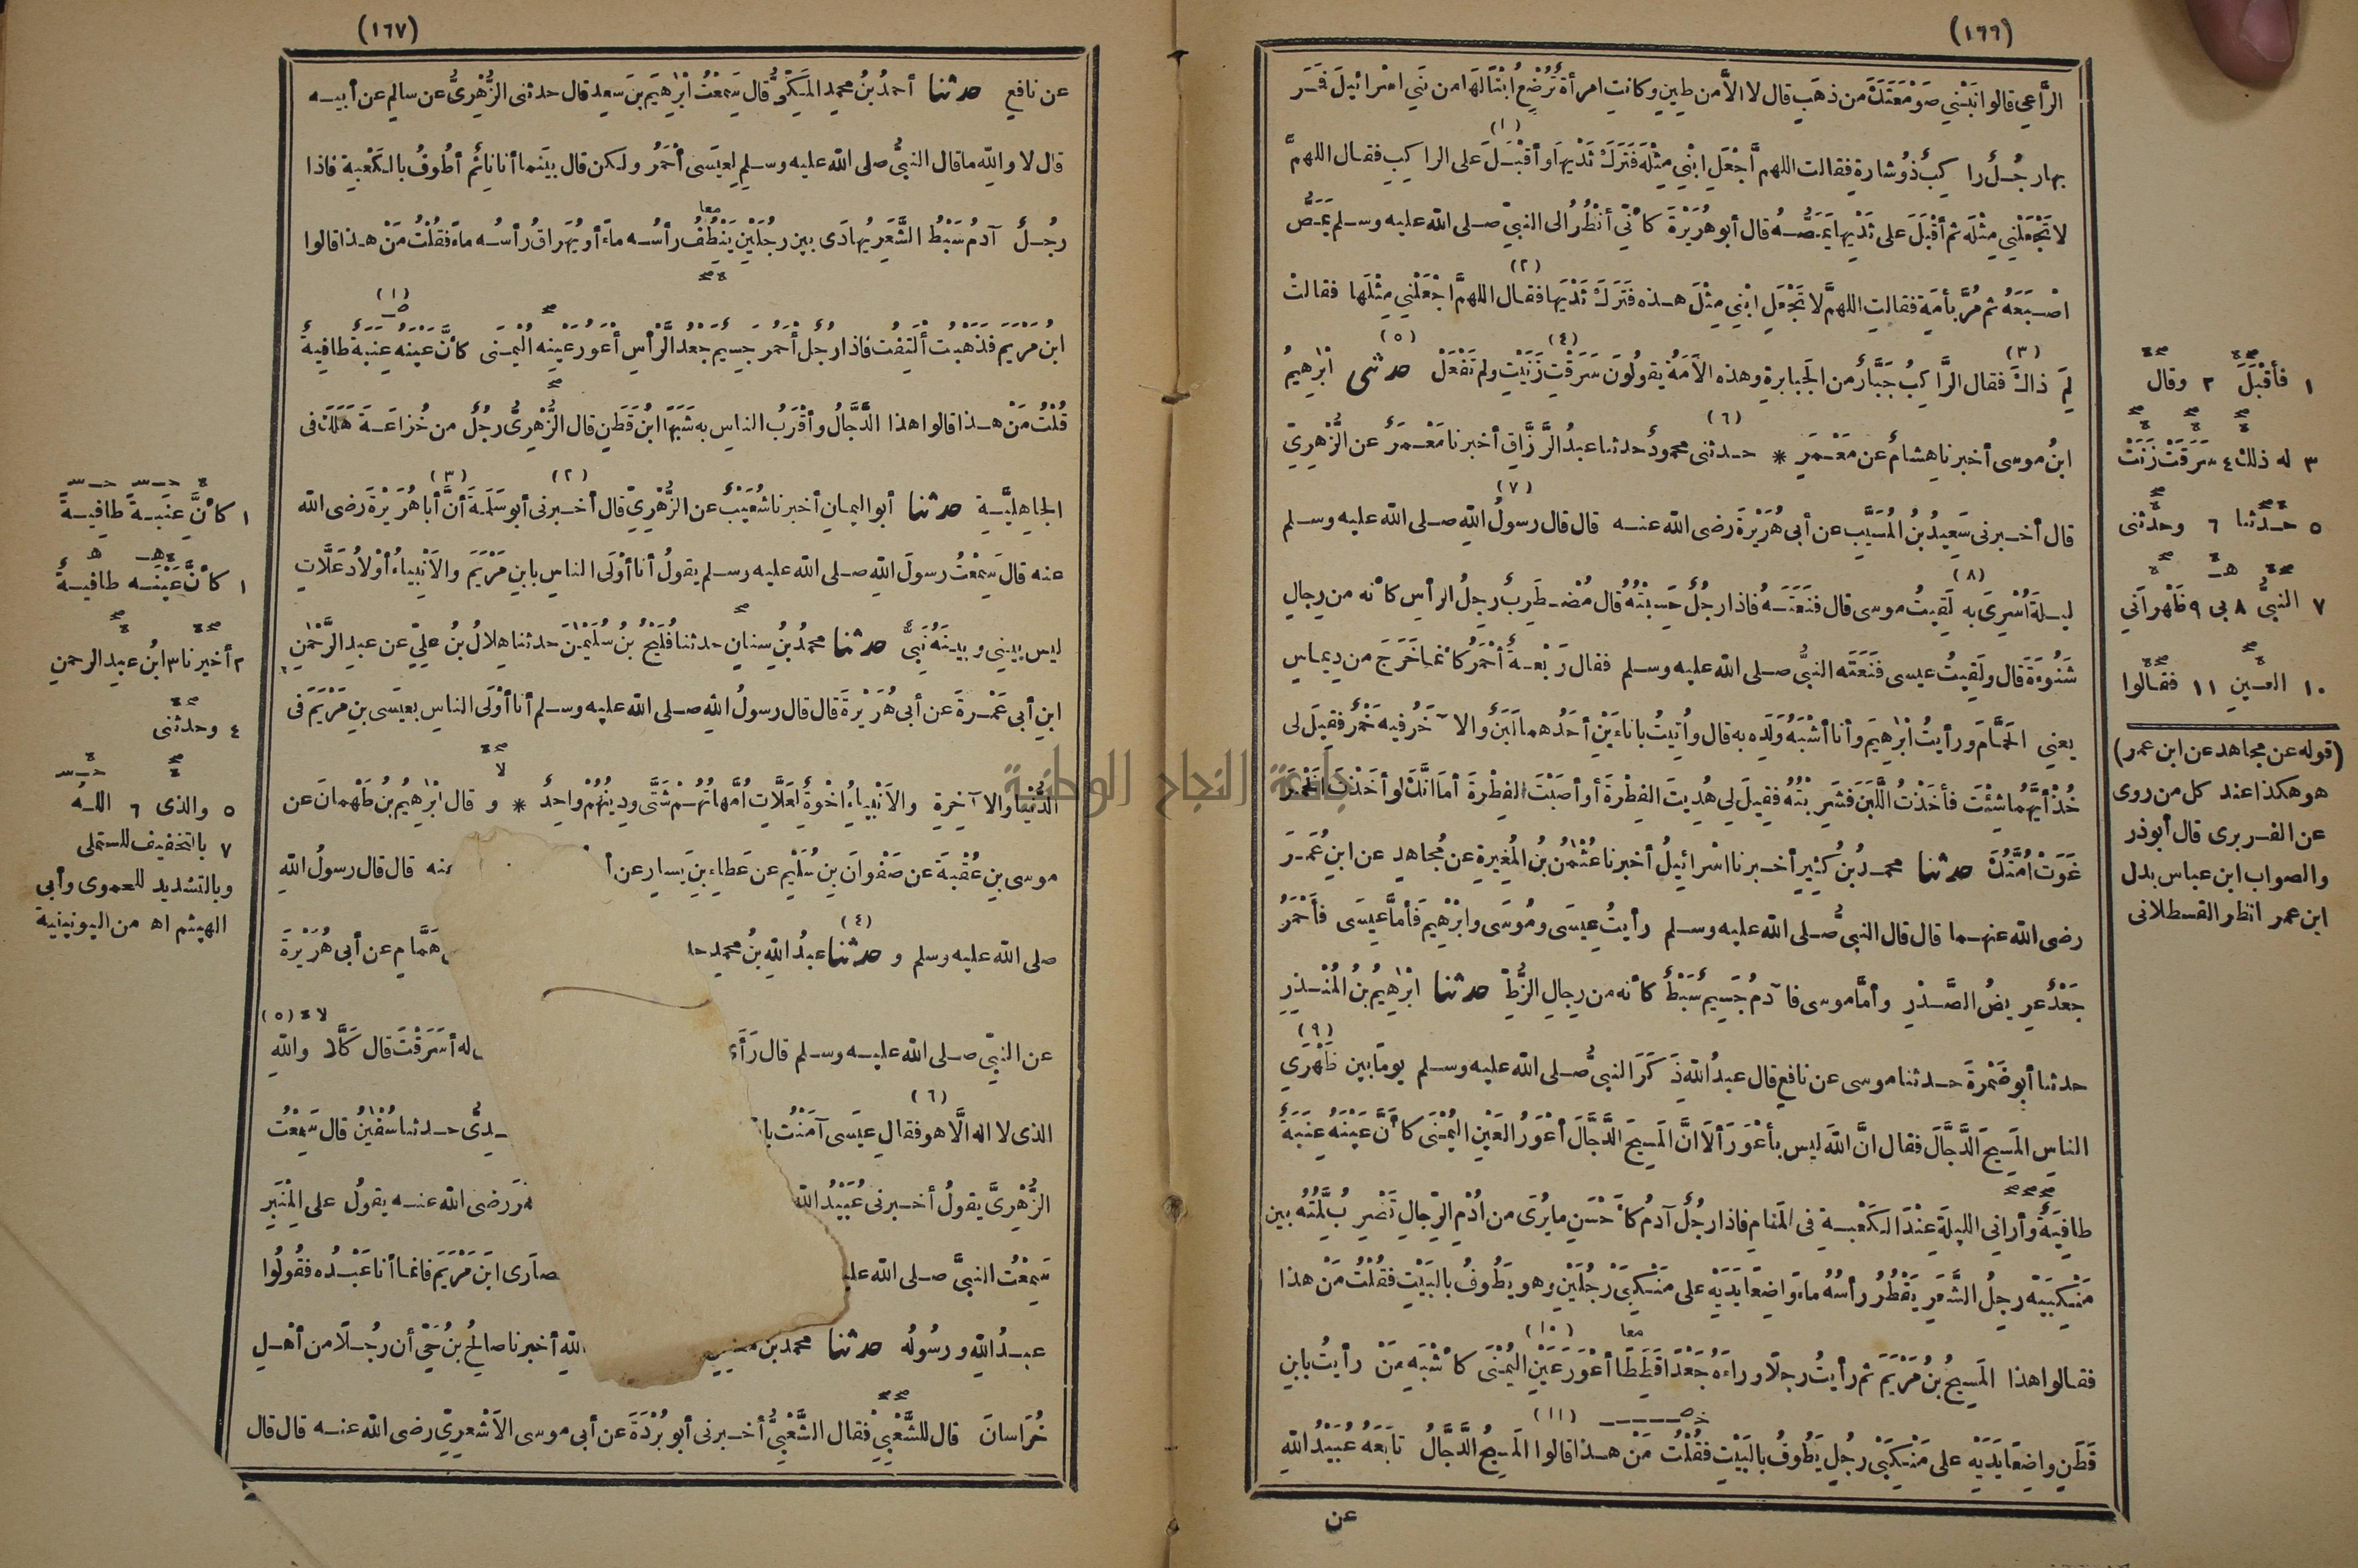 (١٦٦)
الرَّاعِي قالوا نَبْنِي صَوْمَعَتَكَ من ذهَبٍ قال لا الاَّ من طِينٍ وكانتِ امرأةٌ تُرْضِعُ ابْنًا لَهَا من بَنِي اسْرائِيلَ فَمَرَّ
(١)
بها رجُـلٌ را كِبٌ ذُو شارةٍ فقالت اللهمَّ اجْعَلِ ابْنِي مِثْلَهُ فَتَرَكَ ثَدْيَها وأقْبَـلَ على الراكِبِ فقال اللهمَّ
لا تَجْعَلْنِي مِثْلَه ثم أقْبَلَ على ثَدْيِها يَمَصُّـهُ قال أبو هُرَيْرةَ كأنّي أنْظُرُ الى النبيّ صـلى الله عليه وسـلم يَمَصُّ
(٢)
اصْبَعَهُ ثم مُرَّ بأمَةٍ فقالتِ اللهمَّ لا تَجْعَلِ ابْنِي مِثْلَ هـذه فَتَرَكَ ثَدْيَها فقـال اللهمَّ اجْعَلْنِي مِثْلَها فقالتْ
(٣) (٤) (٥)
لِمَ ذاكَ فقال الرَّا كِبُ جَبَّارٌ من الجَبابرةِ وهذه الاَمَةُ يقولُونَ سَرَقْتِ زَنَيْتِ ولم تَفْعَلْ حدثنى ابْرٰهِيمُ
(٦)
ابنُ موسى أخبرنا هشامٌ عن مَعْـمَرٍ * حـدثنى محمودٌ حدثنا عبدُ الرَّزَّاقِ أخبرنا مَعْـمَرٌ عن الزُّهْرِيّ
(٧)
قال أخـبرنى سَعِيدُ بنُ المُسَيَّبِ عن أبى هُرَيْرةَ رضى الله عنـه قال قال رسولُ اللهِ صـلى الله عليه وسـلم
(٨)
ليـلةَ اُسْرِىَ به لَقِيتُ موسى قال فنَعَتَـهُ فاذا رجُلٌ حَسِبْتُهُ قال مُضْـطَرِبٌ رَجِلُ الرأسِ كأنه من رِجالِ
شَنُوءَةَ قال ولَقِيتُ عيسى فَنَعَتَه النبيُّ صـلى الله عليه وسـلم فقال رَبْعـةٌ أحْمَرُ كأنما خَرَجَ من دِيماسٍ
يعنى الحَمَّامَ ورأيتُ ابْرٰهِيمَ وأنا أشْبَهُ وَلَدِه به قال واُتِيتُ باناءَيْنِ أحَدُهما لَبَنٌ والا ٓخَرُ فيه خَمْرٌ فقِيلَ لى
خُذْ أيَّهُما شِئْتَ فأخَذْتُ اللَّبَنَ فشَرِبْتُهُ فقِيلَ لى هُدِيتَ الفِطْرةَ أو أصَبْتَ الفِطْرةَ أما انَّكَ لو أخَذْتَ الخَمْرَ
غَوَتْ اُمَّتُكَ حدثنا محمـدُ بنُ كَثِيرٍ أخـبرنا اسْرائِيلُ أخبرنا عُثْمٰنُ بنُ المُغِيرةِ عن مُجاهدٍ عن ابنِ عُمَـرَ
رضى الله عنهـما قال قال النبيُّ صـلى الله عليه وسـلم رأيتُ عِيسَى ومُوسَى وابْرٰهِيمَ فأمَّا عِيسَى فأحْمَرُ
جَعْدٌ عَرِيضُ الصَّـدْرِ وأمَّا موسى فا ٓدمُ جَسِيمٌ سَبْطٌ كأنه من رِجالِ الزُّطِّ حدثنا ابْرٰهِيمُ بنُ المُنْـذِرِ
(٩)
حدثنا أبو ضَمْرةَ حـدثنا موسى عن نافعٍ قال عبدُ اللهِ ذَ كَرَ النبيُّ صـلى الله عليه وسـلم يومًا بين ظَهْرَيِ
الناسِ المَسِيحَ الدَّجَّالَ فقال انَّ اللهَ ليس بأعْوَرَ ألَا انَّ المَسِيحَ الدَّجَّالَ أعْوَرُ العَيْنِ اليُمْنَى كأنَّ عَيْنَهُ عِنَبَةٌ
طافِيَةٌ وأرانِى الليلةَ عِنْدَ الـكَعْبـةِ فى المَنامِ فاذا رجُلٌ آدمُ كأحْسَنِ ما يُرَى من اُدْمِ الرِّجالِ تَضْرِبُ لِمَّتُهُ بين
مَنْـكِبَيْه رَجِلُ الشَّعَرِ يَقْطُرُ رأسُهُ ماءً واضِعًا يَدَيْهِ على مَنْـكِبَىْ رَجُلَيْنِ وهو يَطُوفُ بالبَيْتِ فقُلْتُ مَنْ هذا
معا (١٠)
فقـالوا هذا المَسِيحُ بنُ مَرْيَمَ ثم رأيتُ رجلًا وراءَهُ جَعْدًا قَطَطًا أعْوَرَ عَيْنِ اليُمْنَى كأشْبَهِ مَنْ رأيتُ بابنِ
(١١)
قَطَنٍ واضِعًا يَدَيْهِ على مَنْـكِبَىْ رجُلٍ يَطُوفُ بالبَيْتِ فقُلْتُ مَنْ هـذا قالوا المَسِيحُ الدَّجَّالُ تابَعَهُ عُبَيْدُ اللهِ
عن
١ فأقْبَلَ ٢ وقال
٣ له ذلك ٤ سَرَقَتْ زَنَتْ
٥ حـدثنا ٦ وحدثنى
٧ النبيُّ ٨ بى ٩ ظَهْرانَيِ
١٠ العـينِ ١١ فقـالوا
(قوله عن مجاهد عن ابن عمر)
هو هكذا عند كل من روى
عن الفـربرى قال أبو ذر
والصواب ابن عباس بدل
ابن عمر انظر القسطلانى
(١٦٧)
عن نافعٍ حدثنا أحمدُ بنُ محمدٍ المَـكِّىُّ قال سَمِعْتُ ابْرٰهِيمَ بنَ سَعِدٍ قال حدثنى الزُّهْرِىُّ عن سالمٍ عن أبيـه
قال لا واللهِ ما قال النبيُّ صلى الله عليه وسـلم لِعِيسَى أحْمَرُ ولـكن قال بينَما أنا نائِمٌ أطُوفُ بالـكَعْبةِ فاذا
معا
رجُـلٌ آدمُ سَبْطُ الشَّعَرِ يُهادَى بين رجُلَيْنِ يَنْطُفُ رأسُـه ماءً أو يُهَراقُ رأسُـه ماءً فقُلْتُ مَنْ هـذا قالوا
(١)
ابنُ مَرْيَمَ فذَهَبْتُ ألْتَفِتُ فاذا رجُلٌ أحْمَرُ جَسِيمٌ جَعْدُ الرَّأسِ أعْوَرُ عَيْنِه اليُمْـنَى كأنَّ عَيْنَه عِنَبَةٌ طافِيةٌ
قُلْتُ مَنْ هـذا قالوا هذا الدَّجَّالُ وأقْرَبُ الناسِ به شَبَهًا ابنُ قَطَنٍ قال الزُّهْرِىُّ رجُلٌ من خُزاعَـةَ هَلَكَ فى
(٢) (٣)
الجاهِلِيَّـةِ حدثنا أبو اليمانِ أخبرنا شُعَيْبٌ عن الزُّهْرِيّ قال أخـبرنى أبو سَلَمةَ أنَّ أبا هُرَيْرةَ رَضى الله
عنه قال سَمِعْتُ رسولَ اللهِ صـلى الله عليه وسـلم يقولُ أنا أوْلَى الناسِ بابنِ مَرْيَمَ والأنْبِياءُ أوْلادُ عَلَّاتٍ
ليس بينِى وبينَهُ نَبىٌّ حدثنا محمدُ بنُ سنانٍ حدثنا فُلَيْحُ بنُ سُلَيْمٰنَ حدثنا هِلالُ بنُ علِىٍّ عن عبدِ الرَّحْمٰنِ
ابنِ أبى عَمْـرةَ عن أبى هُرَيْرةَ قال قال رسولُ اللهِ صـلى الله عليه وسـلم أنا أوْلَى الناسِ بعيسَى بنِ مَرْيَمَ فى
لا
الدُّنْيا والا ٓخِرةِ والاَنْبِياءُ اخْوةٌ لِعَلَّاتٍ اُمَّهاتُهُـمْ شَتَّى ودِينُهُمْ واحِدٌ * وقال ابْرٰهِيمُ بنُ طَهْمانَ عن
موسى بنِ عُقْبَةَ عن صَفْوانَ بنِ سُلَيْمٍ عن عَطاءِ بنِ يَسارٍ عن أ عنه قال قال رسولُ اللهِ
(٤)
صلى الله عليه وسلم و حدثنا عبدُ اللهِ بنُ محمدٍ حد هَمَّامٍ عن أبى هُرَيْرةَ
لا (٥)
عن النبيِّ صـلى الله عليـه وسـلم قال رَأَى له أسَرَقْتَ قال كَلَّا واللهِ
(٦)
الذى لا اله الَّا هو فقال عِيسَى آمَنْتُ با ـيدىُّ حـدثنا سُفْيٰنُ قال سَمِعْتُ
الزُّهْرِىَّ يقولُ أخـبرنى عُبَيْدُ الله مَرَ رضى الله عنـه يقولُ على المِنْبَرِ
سَمِعْتُ النبيَّ صـلى الله عليـ ـصارَى ابنَ مَرْيَمَ فانما أنا عَبْـدُه فقُولُوا
عبـدُ اللهِ ورسُولُه حدثنا محمدبن اللهِ أخبرنا صالحُ بنُ حَىٍّ أن رجُـلًا من أهْـلِ
خُرَاسانَ قال للشَّعْبِىِّ فقال الشَّعْبِىُّ أخـبرنى أبو بُرْدَةَ عن أبى موسى الاَشْعرِيّ رضى الله عنـه قال قال
١ كأنَّ عِنَبـةً طافيـةً
١ كأنَّ عَيْنَـه طافيـةٌ
٢ أخبرنا ٣ ابنُ عبد الرحمن
٤ وحدثنى
٥ والذى ٦ اللـهُ
٧ بالتخفيف للمستملى
وبالتشديد للحموى وأبى
الهيثم اه من اليونينية
جامعة النجاح الوطنية